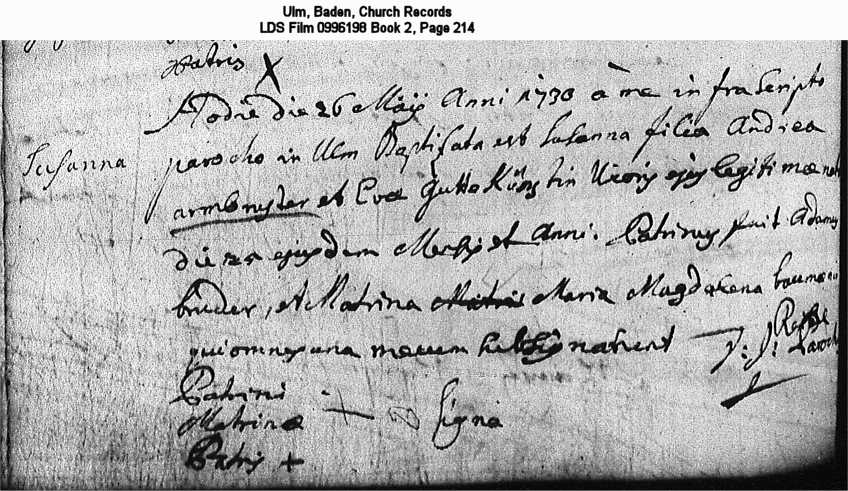 Ulm, Baden, Church Records
LDS Film 0996198 Book 2, Page 214
Patris X
Hodie die 26 Maÿ Anni 1730 à me infra Scripto
Susanna
parocho in Ulm Baptisata est Susanna filia Andrea
armbruster et Eva Uxoris ejus legitimæ
die 25 ejusdem Mensis et Anni. Patrinus fuit Adamus
bruder, et Matrina Maria Magdalena
qui omnes una mecum
Patrini
Matrinæ + Signa
Patris +